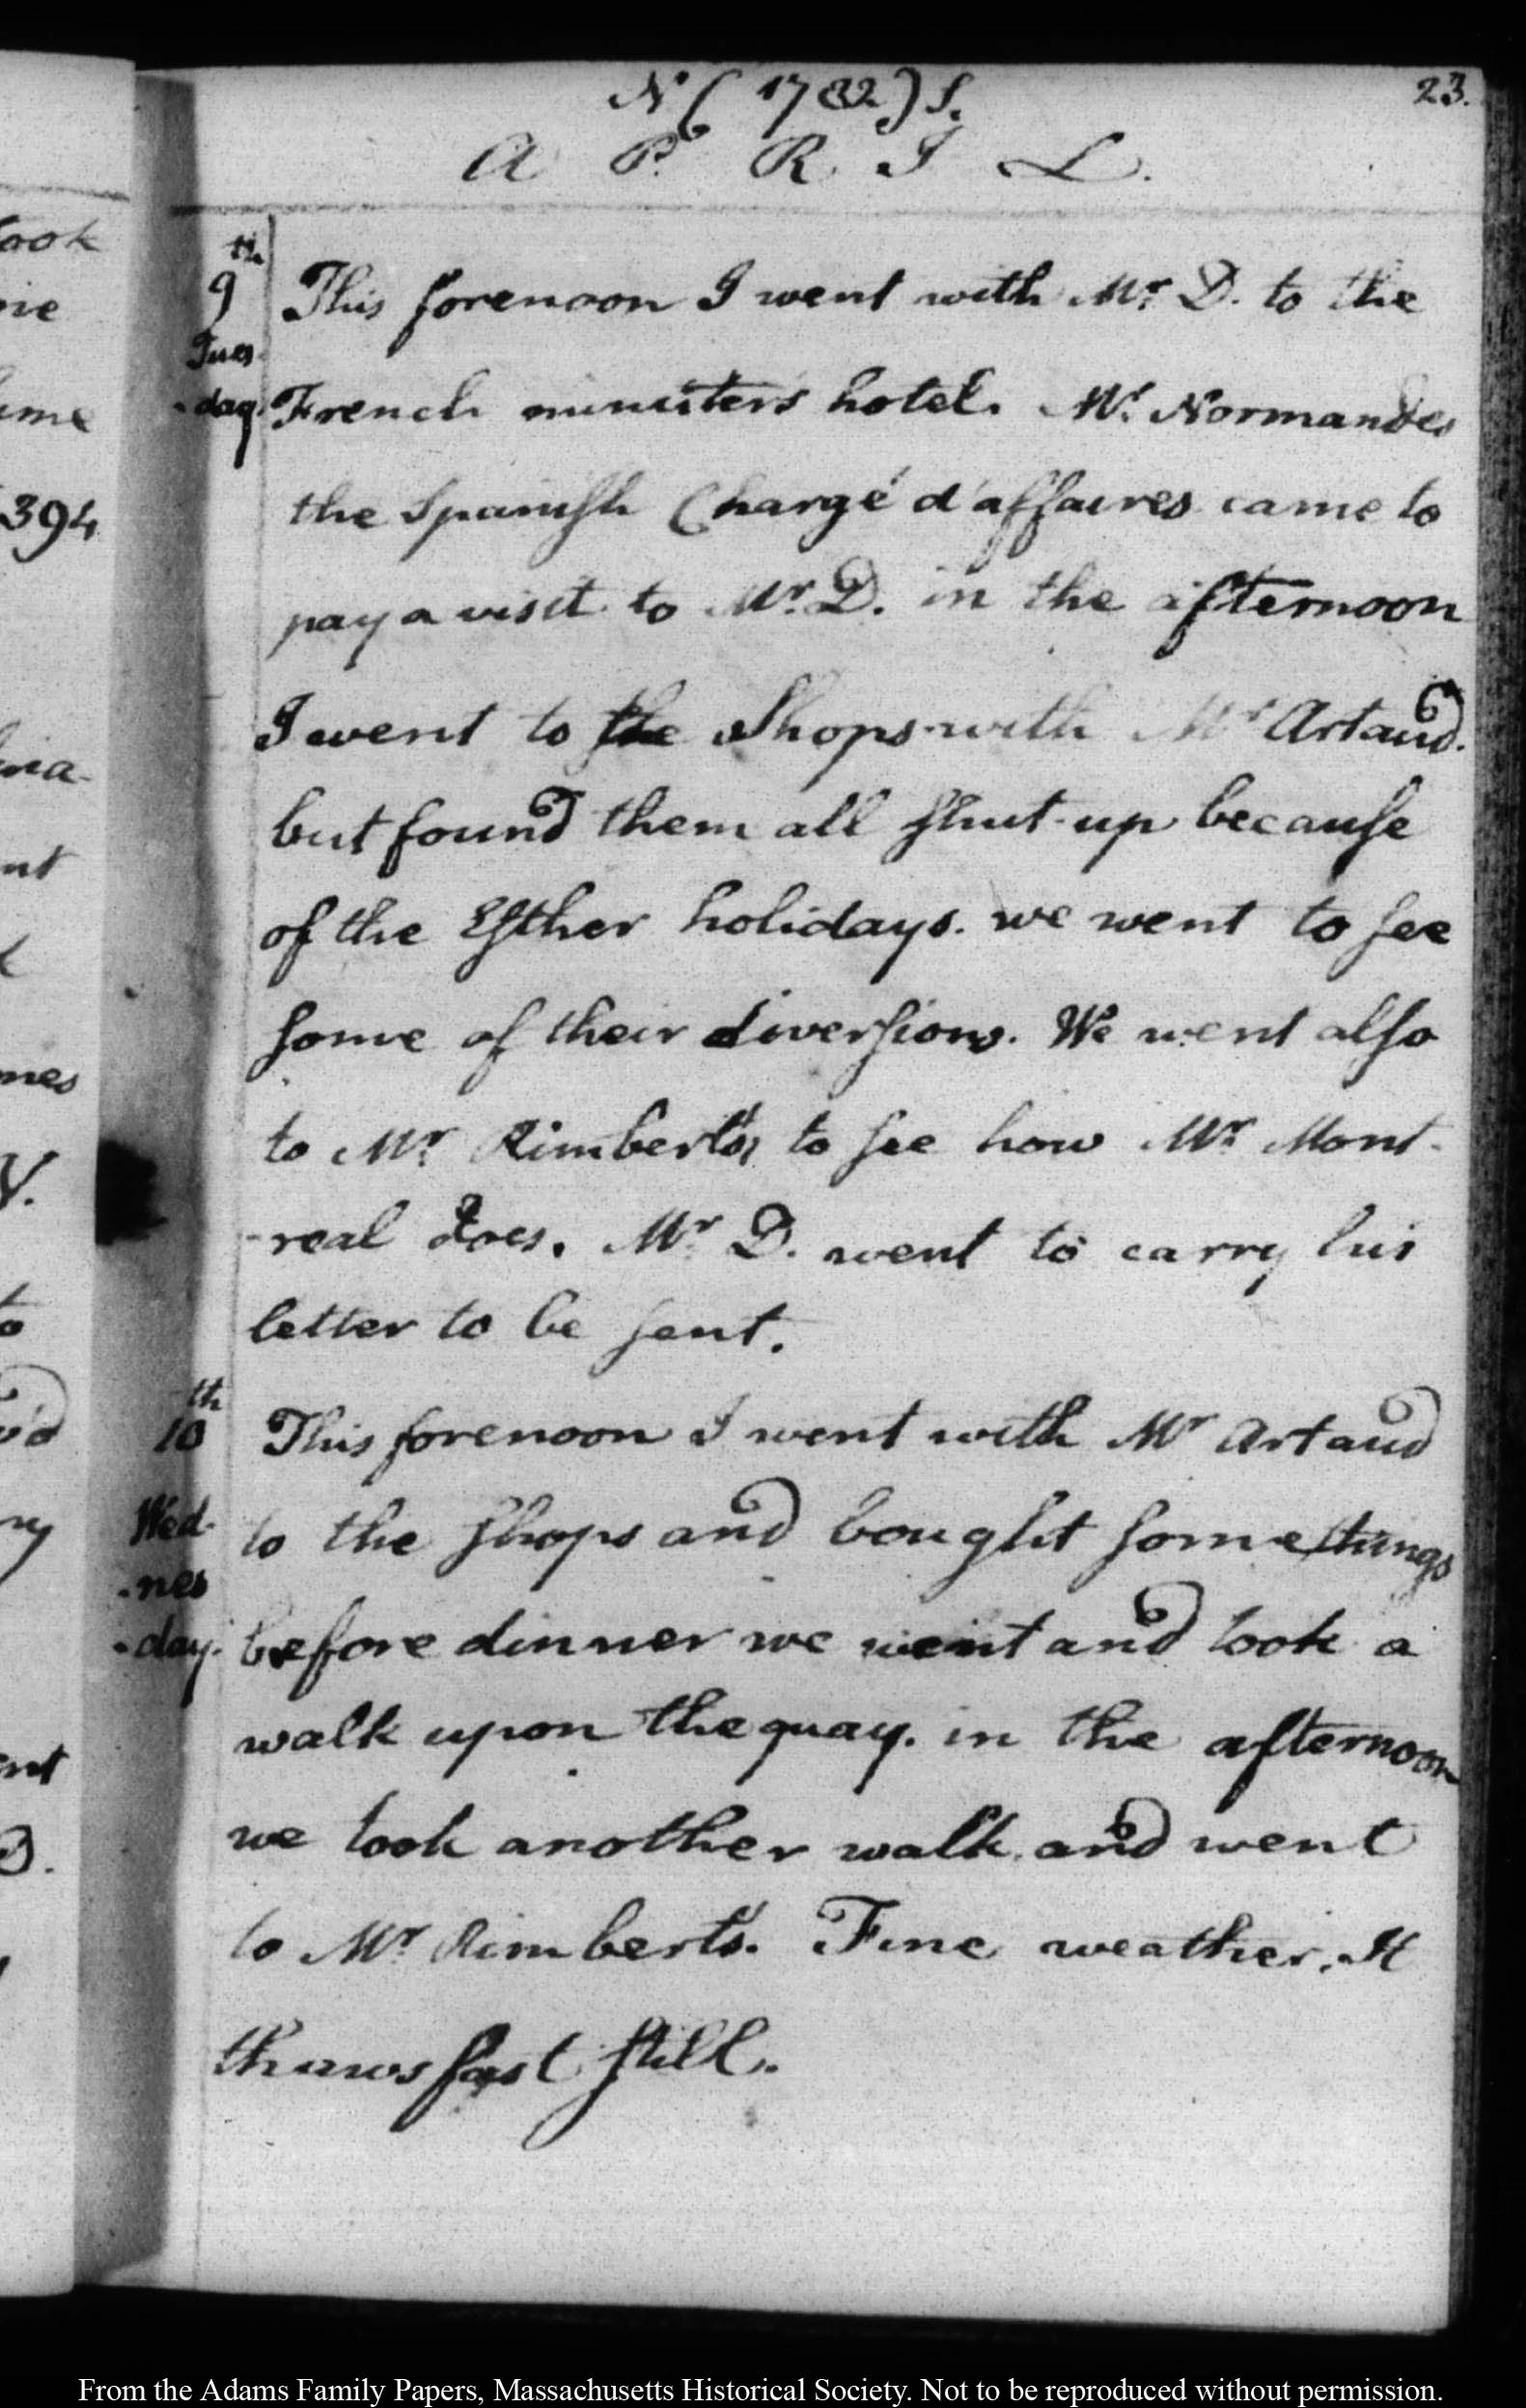 N (1782) S.
23.
A P R I L.
9th Tues-day. This forenoon I went with Mr. D. to the
French ministers hotel. Mr. Normandes
the Spanish Chargé d'affaires came to
pay a visit to Mr. D. in the afternoon
I went to the Shops with Mr Artaud.
but found them all shut up because
of the Esther holidays. we went to see
some of their diversions. We went also
to Mr. Rimbert's, to see how Mr. Mont-
-real does. Mr. D. went to carry his
letter to be sent.
10th Wed-nes-day. This forenoon I went with Mr Artaud
to the shops and bought some things
before dinner we went and took a
walk upon the quay. in the afternoon
we took another walk and went
to Mr. Rimbert's. Fine weather. It
thaws fast still.
ook
me
394
nt
nes
V.
to
nt
D.
From the Adams Family Papers, Massachusetts Historical Society. Not to be reproduced without permission.